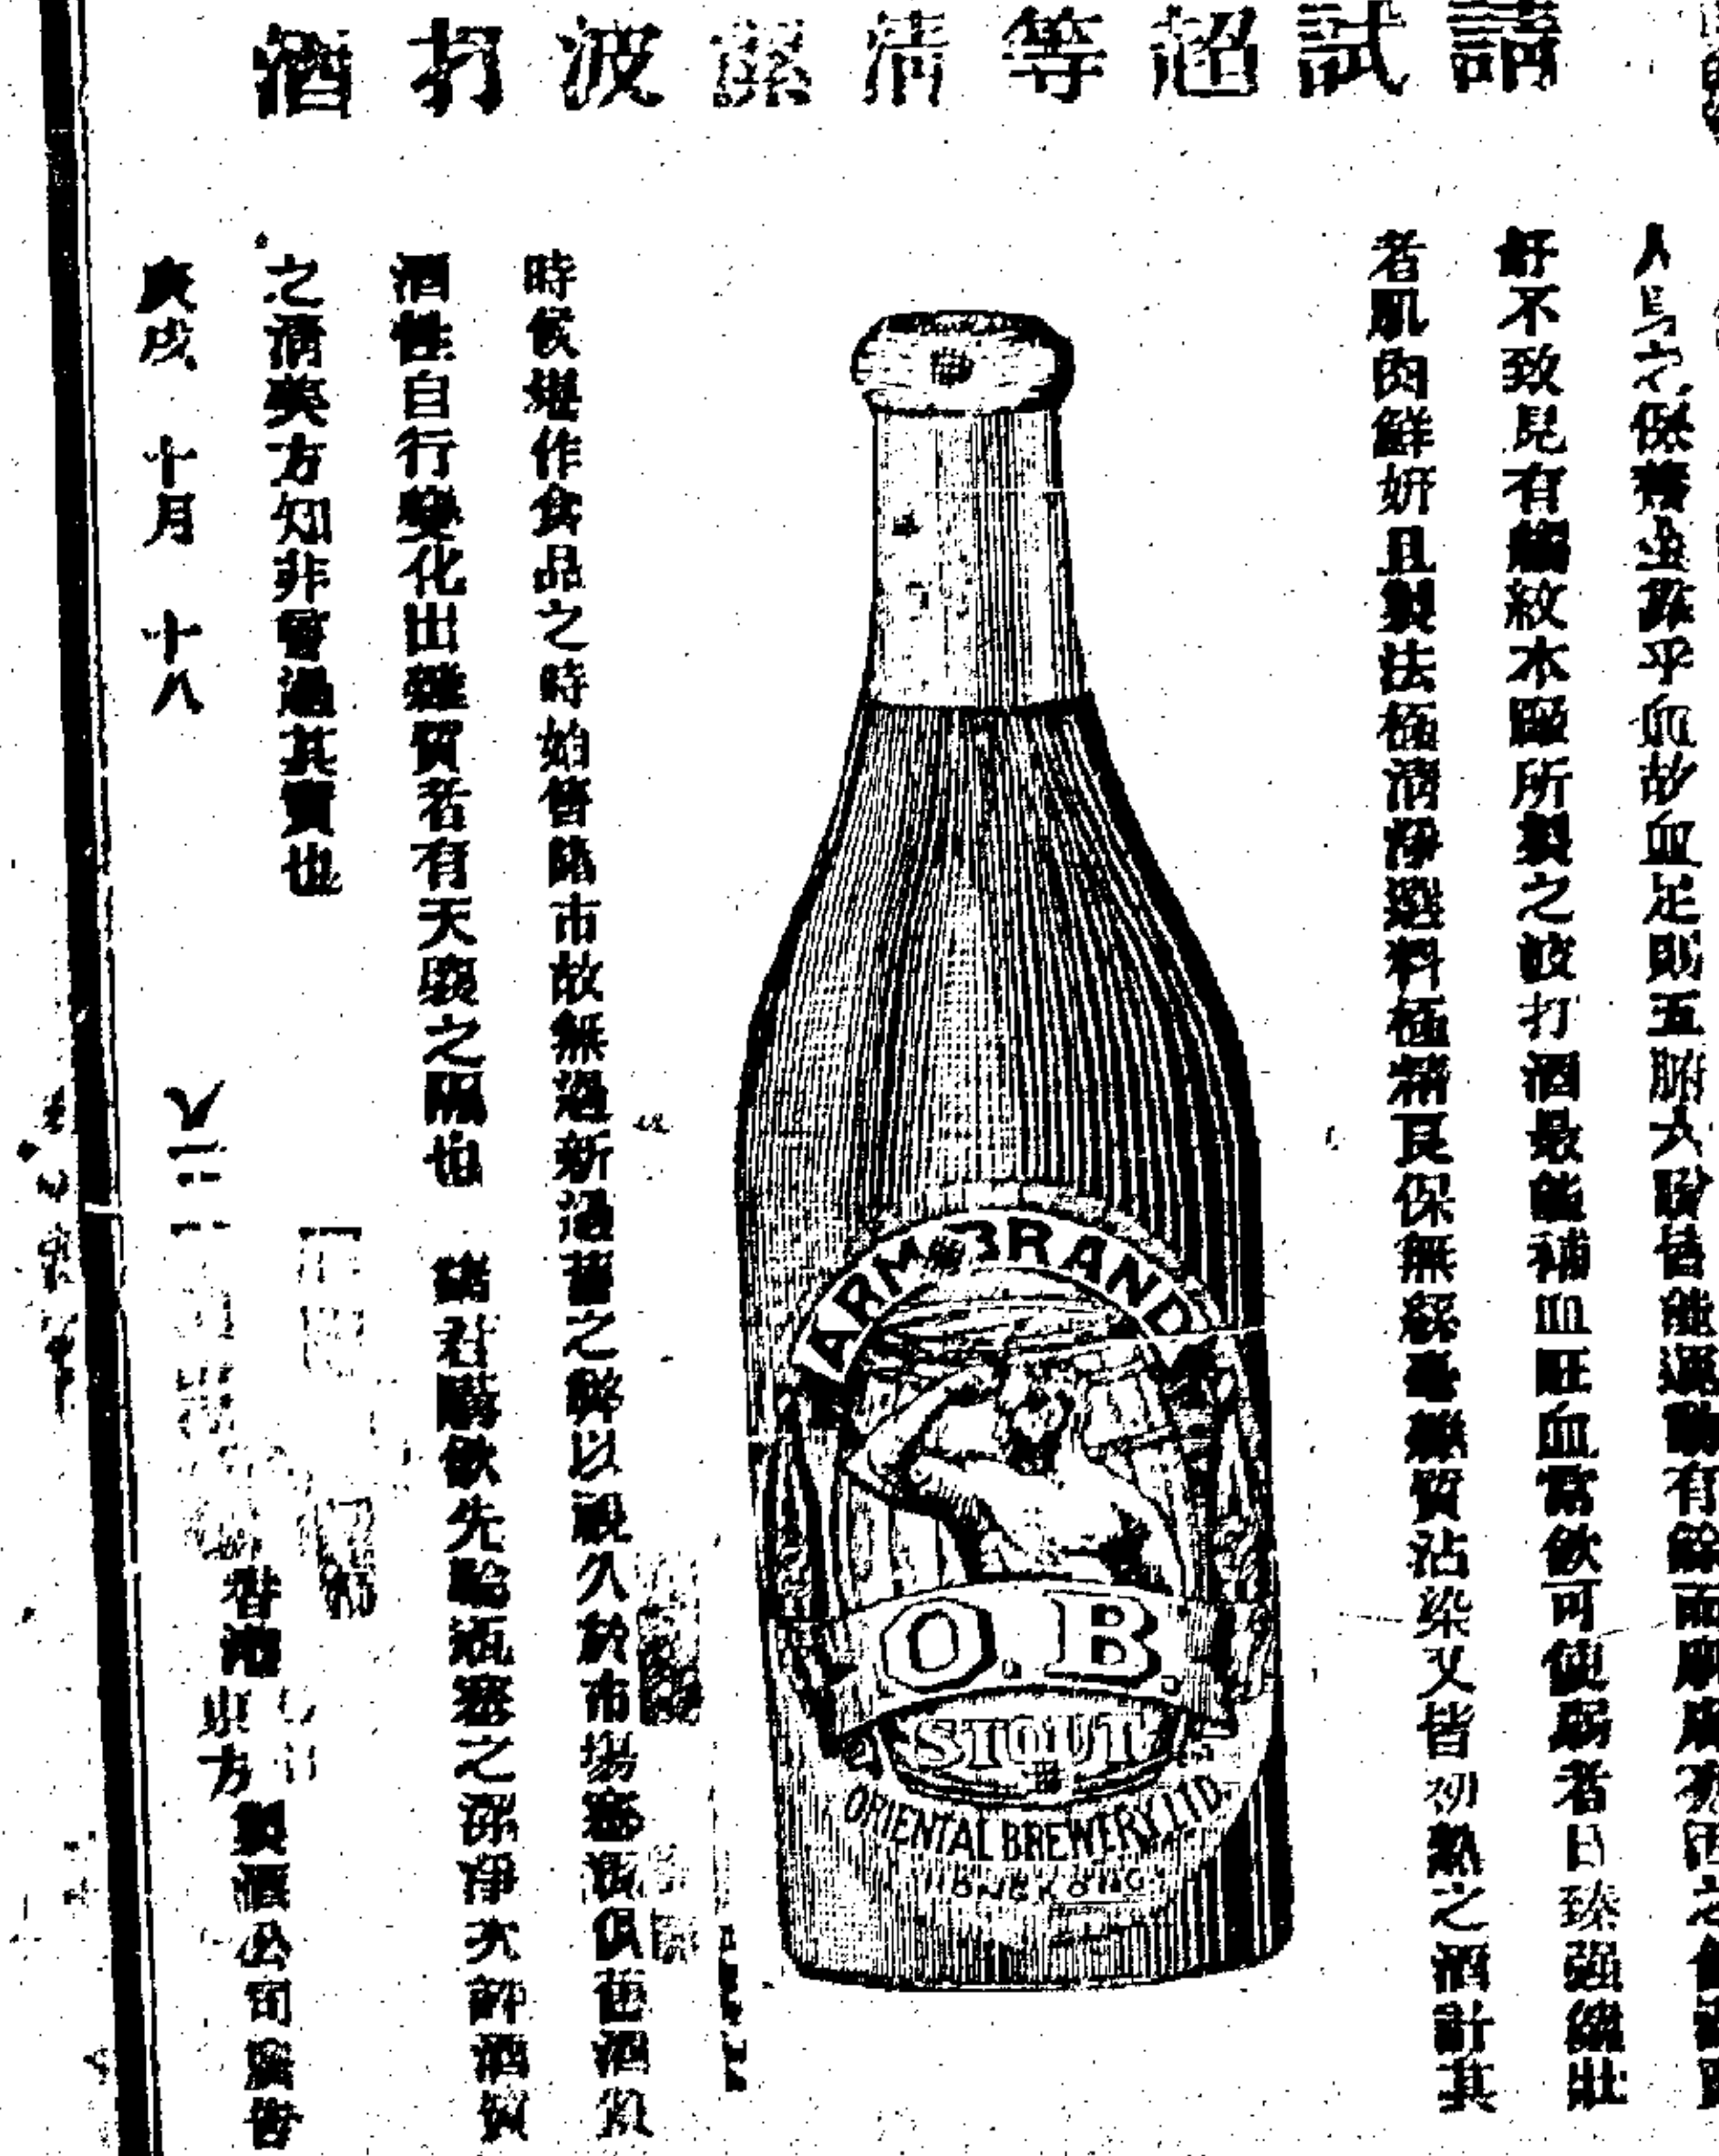 請試超等清潔波打酒
人身之保養全靠乎血故血足則五腑六臟皆能運動有餘而肌膚亦因之
舒不致見有皺紋本廠所製之波打酒最能補血旺血常飲可使弱者日臻强健壯
者肌肉鮮妍且製法極清淨選料極精良保無絲毫雜質沾染又皆初熟之酒計其
ARM BRAND
O.B.
STOUT
ORIENTAL BREWERY, LTD.
HONGKONG
時候堪作食品之時始售諸市故無過新過舊之弊以視久於市場塞
酒性自行變化出雜質者有天壤之隔也 諸君購飲先驗瓶塞之潔淨次評酒質
之清美方知非譽過其實也
庚戌 十月 十八
香港東方製酒公司廣告